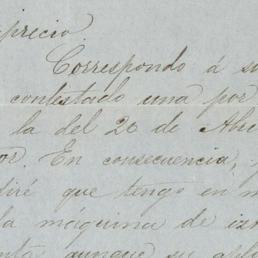 precio.
Correspondo á su
contestado una por
la del 20 de Abr
En consecuencia,
diré que tengo en m
la máquina de iza
aunque su apl